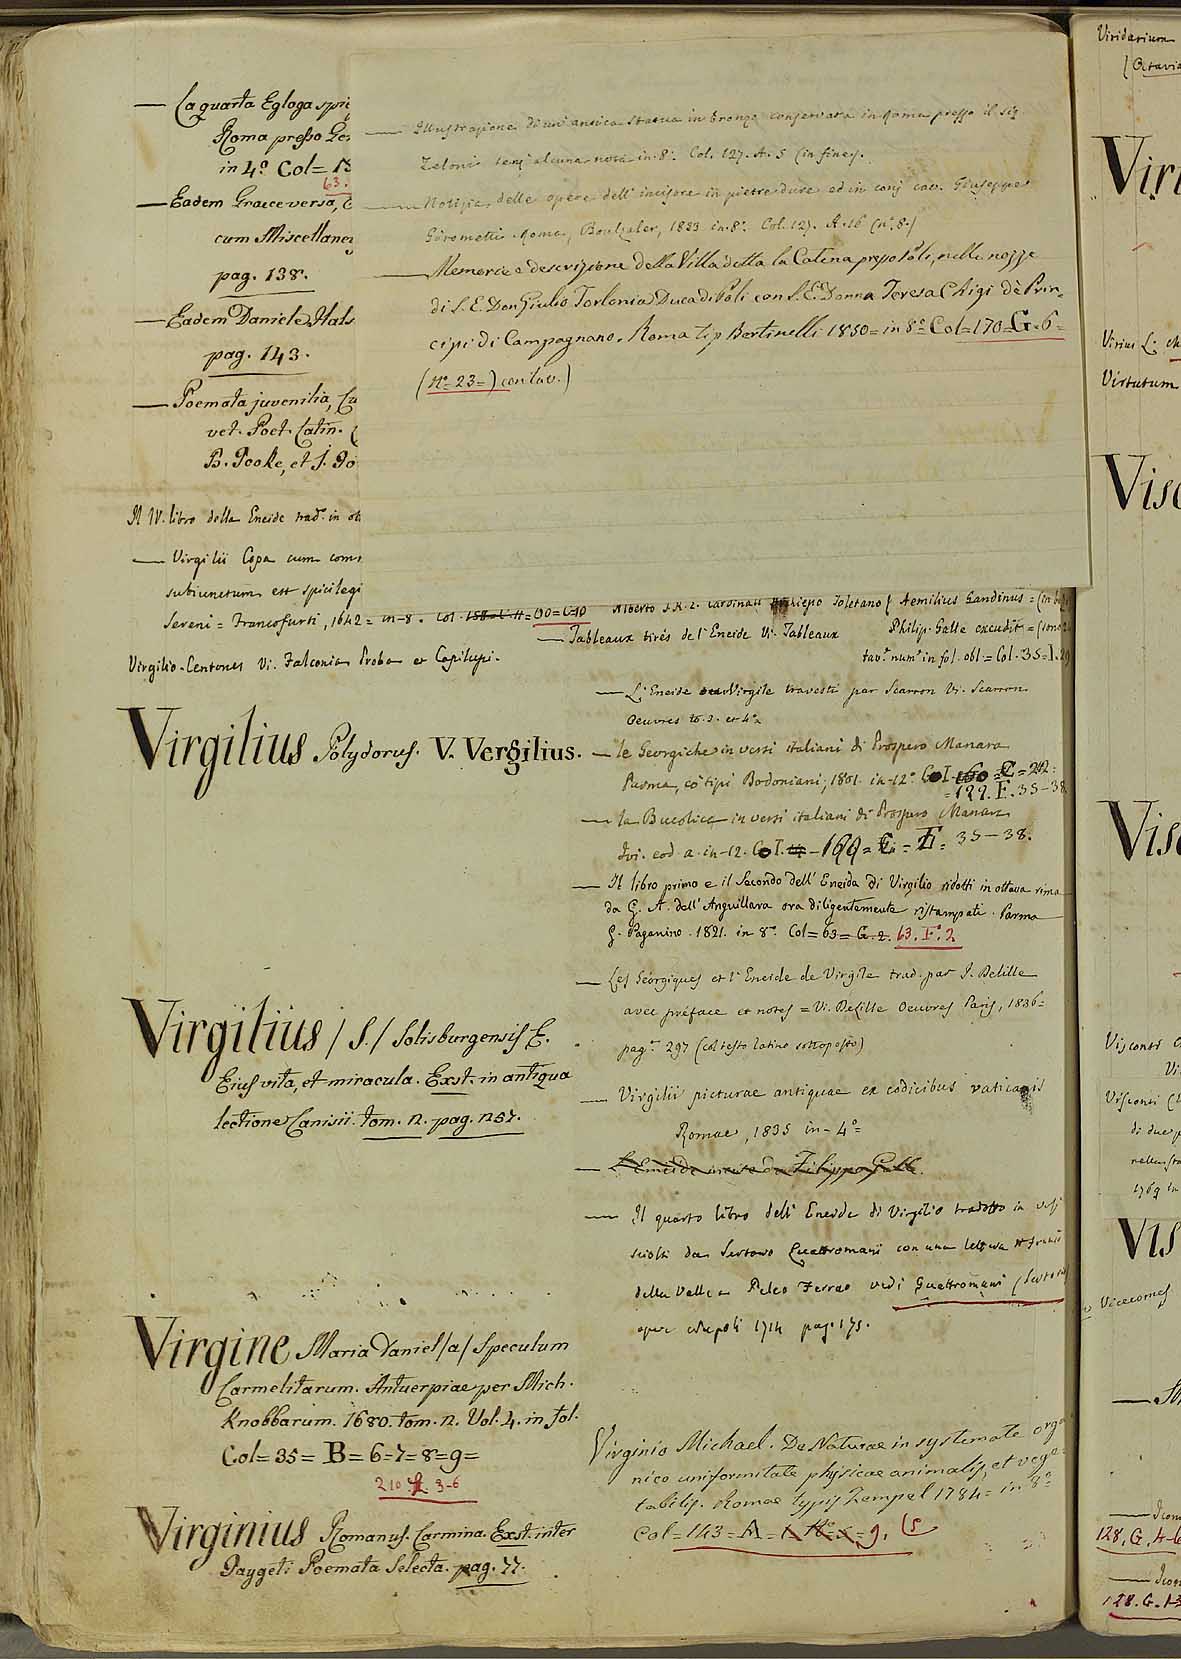 — La quarta Egloga spie
Roma presso Ge
in 4.° Col = 13
63.
— Eadem Graece versa,
cum Miscellaney
pag. 138.
— Eadem Daniele Hals
pag. 143.
— Poemata juvenilia, Cu
vet. Poet. Latin.
B. Pooke, et J. Jo
Il IV. libro della Eneide trad.° in ott
— Virgilii Copa cum com
subiunctum est spicilegi
Sereni = Francofurti, 1642 = in-8. Col. = 90 = C = 10
Virgilio-Centones Vi. Falconia Proba et Capilupi.
Virgilius Polydorus. V. Vergilius.
Virgilius / S. / Solisburgensis E.
Eius vita, et miracula. Exst. in antiqua
lectione Canisii. tom. n. pag. 1157.
Virgine Maria Daniel / a / Speculum
Carmelitarum. Antuerpiae per Mich.
Knobbarum. 1680. tom. n. Vol. 4. in fol.
Col = 35 = B = 6 = 7 = 8 = 9 =
210 3-6
Virginius Romanus. Carmina. Exst. inter
Paygeti Poemata Selecta. pag. 77.
— Illustrazione di un' antica statua in bronzo conservata in Roma presso il sig.
Zeloni senz' alcuna nota in 8.° Col. 127. A. 5 (in fine).
— Notizia delle opere dell' incisore in pietre dure ed in conj cav. Giuseppe
Girometti Roma, Boulzaler, 1833. in 8.° Col. 127. A. 16 (n.° 8.)
— Memorie e descrizione della Villa detta la Catena presso Poli, nelle nozze
di S. E. Don Giulio Torlonia Duca di Poli con S. E. Donna Teresa Chigi dè Prin-
cipi di Campagnano. Roma tip Bertinelli 1850 = in 8.° = Col = 170 = G. 6 =
(N.° = 23 =) con tav.)
Alberto S. R. E. Cardinali Toletano { Aemilius Gandinus = (in
— Tableaux tirés de l' Eneide Vi. Tableaux
Philip. Galle excudit =
tav.e num.e in fol. obl. = Col. 35 = I.
— L' Eneide Virgile travesti par Scarron Vi. Scarron
Oeuvres to. 3. et 4.
— le Georgiche in versi italiani di Prospero Manara
Parma, co' tipi Bodoniani, 1801. in-12.° Col 160 = C = 242 =
= 199. F. 35-38
— la Bucolica in versi italiani di Prospero Manara
Ivi. eod. a. in-12. Col. - 199 = F = 35-38.
— Il libro primo e il Secondo dell' Eneida di Virgilio ridotti in ottava rima
da G. A. dell' Anguillara ora diligentemente ristampati. Parma
G. Paganino. 1821. in 8.° Col = 63 = G. 2. 63. F. 2
— Les Géorgiques et l' Eneide de Virgile trad. par J. Delille
avec préface et notes = Vi. Delille Oeuvres Paris, 1836 =
pag.e 297 (col testo latino sottoposto)
— Virgilii picturae antiquae ex codicibus vaticanis
Romae, 1835 in-4.° =
— L' Eneide incisa da Filippo Galle.
— Il quarto libro dell' Eneide di Virgilio tradotto in versi
sciolti da Sertorio Quattromani con una lettera
della Valle a Peleo Ferrao vedi Quattromani (Sertorio)
opere Napoli 1714 pag. 175.
Virginio Michael. De Naturae in systemate orga
nico uniformitate physicae animalis, et vege
tabilis. Romae typis Zempel 1784 = in 8.°
Col = 143 = A = 9. 15
Viridarium
(Octavia
Viri
Virius L.
Virtutum
Visc
Visc
Visconti
Visconti
di due
nella
1769 in
Vis
Vicecomes
128. G. 4-6
128. G. 1-3